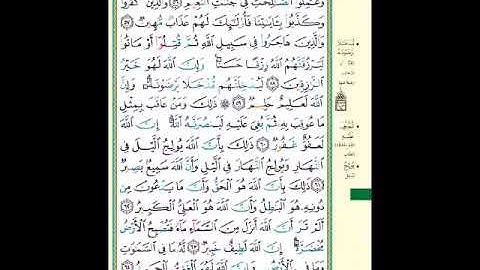 وَعَمِلُوا۟ ٱلصَّـٰلِحَـٰتِ فِى جَنَّـٰتِ ٱلنَّعِيمِ ٥٦ وَٱلَّذِينَ كَفَرُوا۟
وَكَذَّبُوا۟ بِـَٔايَـٰتِنَا فَأُو۟لَـٰٓئِكَ لَهُمْ عَذَابٌ مُّهِينٌ ٥٧
وَٱلَّذِينَ هَاجَرُوا۟ فِى سَبِيلِ ٱللَّهِ ثُمَّ قُتِلُوٓا۟ أَوْ مَاتُوا۟
لَيَرْزُقَنَّهُمُ ٱللَّهُ رِزْقًا حَسَنًا ۚ وَإِنَّ ٱللَّهَ لَهُوَ خَيْرُ
ٱلرَّٰزِقِينَ ٥٨ لَيُدْخِلَنَّهُم مُّدْخَلًا يَرْضَوْنَهُۥ ۗ وَإِنَّ
ٱللَّهَ لَعَلِيمٌ حَلِيمٌ ٥٩ ۞ ذَٰلِكَ وَمَنْ عَاقَبَ بِمِثْلِ
مَا عُوقِبَ بِهِۦ ثُمَّ بُغِىَ عَلَيْهِ لَيَنصُرَنَّهُ ٱللَّهُ ۗ إِنَّ ٱللَّهَ
لَعَفُوٌّ غَفُورٌ ٦٠ ذَٰلِكَ بِأَنَّ ٱللَّهَ يُولِجُ ٱلَّيْلَ فِى
ٱلنَّهَارِ وَيُولِجُ ٱلنَّهَارَ فِى ٱلَّيْلِ وَأَنَّ ٱللَّهَ سَمِيعٌۢ بَصِيرٌ
٦١ ذَٰلِكَ بِأَنَّ ٱللَّهَ هُوَ ٱلْحَقُّ وَأَنَّ مَا يَدْعُونَ مِن
دُونِهِۦ هُوَ ٱلْبَـٰطِلُ وَأَنَّ ٱللَّهَ هُوَ ٱلْعَلِىُّ ٱلْكَبِيرُ ٦٢
أَلَمْ تَرَ أَنَّ ٱللَّهَ أَنزَلَ مِنَ ٱلسَّمَآءِ مَآءً فَتُصْبِحُ ٱلْأَرْضُ
مُخْضَرَّةً ۗ إِنَّ ٱللَّهَ لَطِيفٌ خَبِيرٌ ٦٣ لَّهُۥ مَا فِى ٱلسَّمَـٰوَٰتِ
وَمَا فِى ٱلْأَرْضِ ۗ وَإِنَّ ٱللَّهَ لَهُوَ ٱلْغَنِىُّ ٱلْحَمِيدُ ٦٤